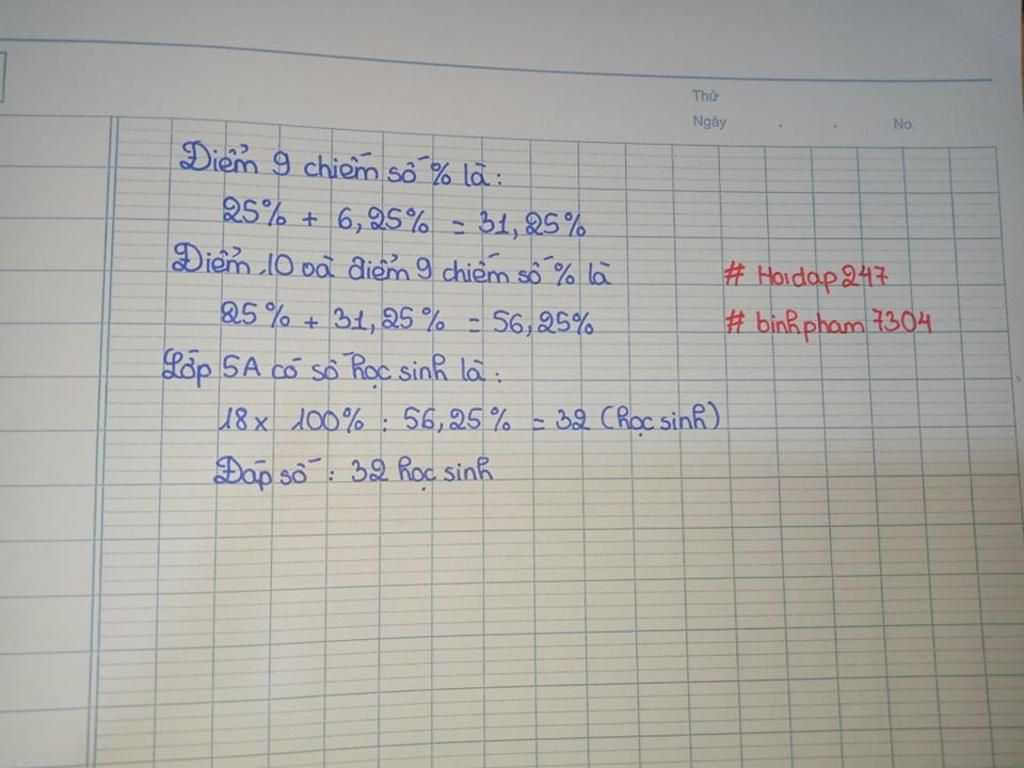 Thứ
Ngày . . No.
Điểm 9 chiếm số % là:
25% + 6,25% = 31,25%
Điểm 10 và điểm 9 chiếm số % là
# Hoidap247
25% + 31,25% = 56,25%
# binhpham7304
Lớp 5A có số học sinh là:
18 x 100% : 56,25% = 32 (học sinh)
Đáp số : 32 học sinh